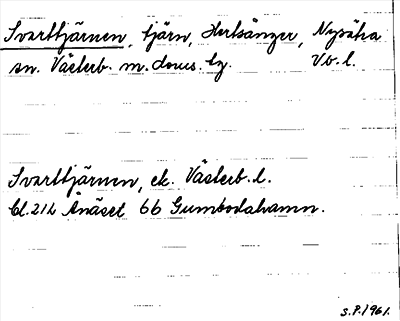 Svarttjärnen, tjärn, Hertsånger, Nysätra
sn. Västerb. m. doms. by. Vb. l.
Svarttjärnen, ek. Västerb. l.
Bl. 212 Ånäset 66 Gumbodahamn.
S.P. 1961.